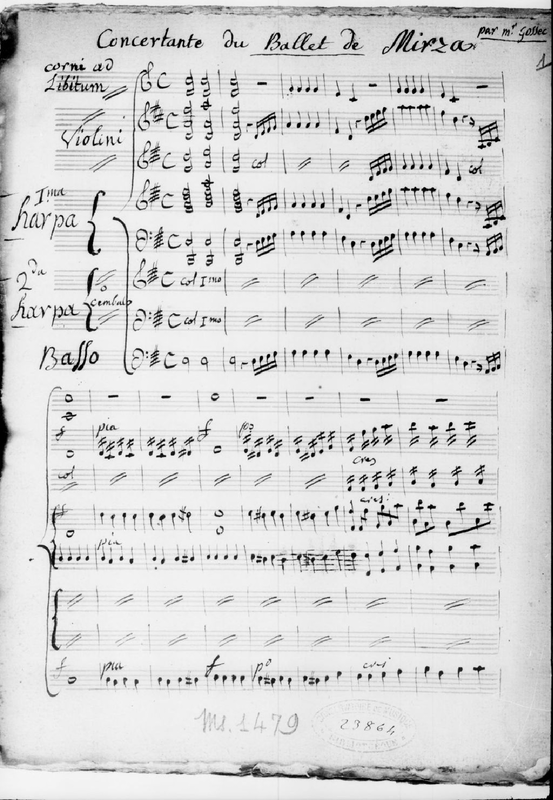 par mr Gossec
Concertante du Ballet de Mirza
1
corni ad
Libitum
Violini
col
col
Ima
harpa
2da
harpa
o
Cembalo
col Imo
col Imo
Basso
f
pia
f
po
cres
col
cres:
pia
f
pia
f
po
cres
Ms. 1479
23864